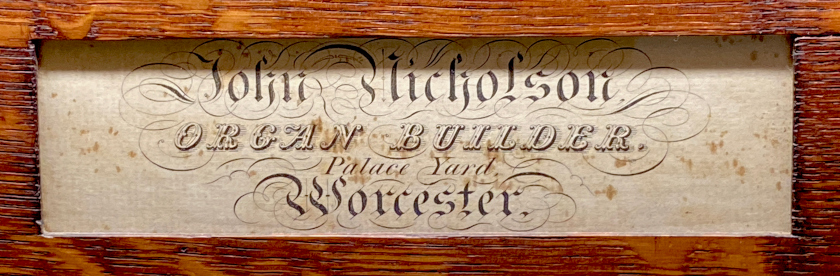 John Nicholson,
ORGAN BUILDER.
Palace Yard,
Worcester.